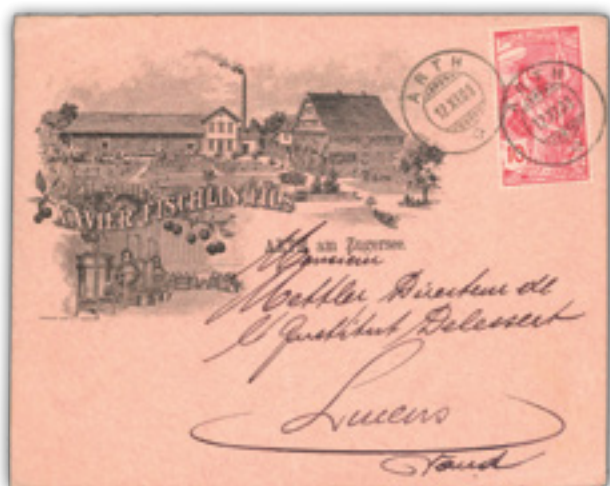 ARTH
12.XI.00
XAVIER FISCHLIN FILS
ARTH am Zugersee
Monsieur
Mettler Directeur de
l'Institut Delessert
Lucens
Vaud
10
ARTH